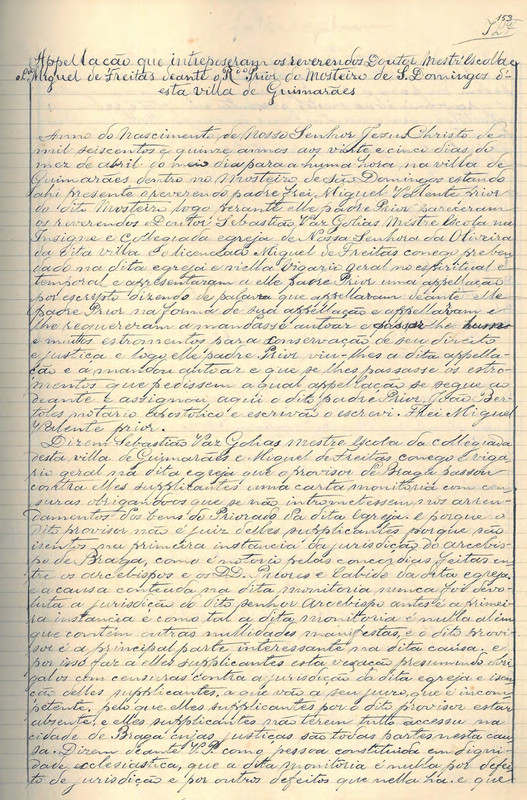 153
Appellação que intreposeram os reverendos Doutor Mestr'Escolla
e Ldo Miguel de Freitas deante o Rdo Prior do Mosteiro de S. Domingos d'
esta villa de Guimarães
Anno do Nascimento de Nosso Senhor Jesus Christo de
mil seiscentos e quinze annos aos vinte e cinco dias do
mez de abril do meio dia para a huma hora na villa de
Guimarães dentro no Mosteiro de São Domingos estando
ahi presente o reverendo padre Frei Miguel Vallente Prior
do dito Mosteiro logo perante elle padre Prior pareceram
os reverendos Doutor Sebastião Vaz Golias Mestre Escola na
Insigne e Collegiada egreja de Nossa Senhora da Oliveira
da dita villa e licenceado Miguel de Freitas conego preben
dado na dita egreja e n'ella Vigario geral no espiritual e
temporal e apresentaram a elle padre Prior uma appellação
por escripto dizendo de palavra que appellavam deante elle
padre Prior na forma de sua appellação e appellavam e
lhe requereram a mandasse autoar e passar lhe hum
e muitos estromentos para conservação de seu direito
e justiça e logo elle padre Prior viu-lhes a dita appella-
ção e a mandou autoar e que se lhes passasse os estro-
mentos que pedissem a qual appellação se segue ao
deante e assignou aqui o dito padre Prior, João Ber-
toles notario Apostolico e escrivão o escrevi. Frei Miguel
Valente prior.
Dizem Sebastião Vaz Golias mestre escola da collegiada
desta villa de Guimarães e Miguel de Freitas conego e viga
rio geral na dita egreja que o provisor de Braga passou
contra elles supplicantes uma carta monitoria com cen-
suras obrigando-os que se não intromettessem nos arren-
damentos dos bens do Priorado da dita egreja e porque o
dito provisor não é juiz delles supplicantes porque são
isentos na primeira instancia da jurisdição do arcebis-
po de Braga, como é notorio pelas concordias feitas en-
tre os arcebispos e os DD. Priores e Cabido da dita egreja,
e a causa contheuda na dita monitoria nunca foi devo-
luta á jurisdição do dito senhor Arcebispo antes é a primei-
ra instancia e como tal a dita monitoria é nulla alem
que contêm outras nullidades manifestas, e o dito provi-
sor é a principal parte interessante na dita causa, e
por isso faz a elles supplicantes esta vexação presumindo obri-
gal-os com censuras contra a jurisdição da dita egreja e isen-
ção delles supplicantes, a que vão a seu juizo, que é incom-
petente, pelo que elles supplicantes por o dito provisor estar
absente, e elles supplicantes não terem tuto accesso na
cidade de Braga cujas justicas são todas partes nesta cau
sa. Dizem deante V. P. como pessoa constituida em digni-
dade ecclesiastica, que a dita monitoria é nulla por defei-
to de jurisdição e por outros defeitos que nella ha. e que